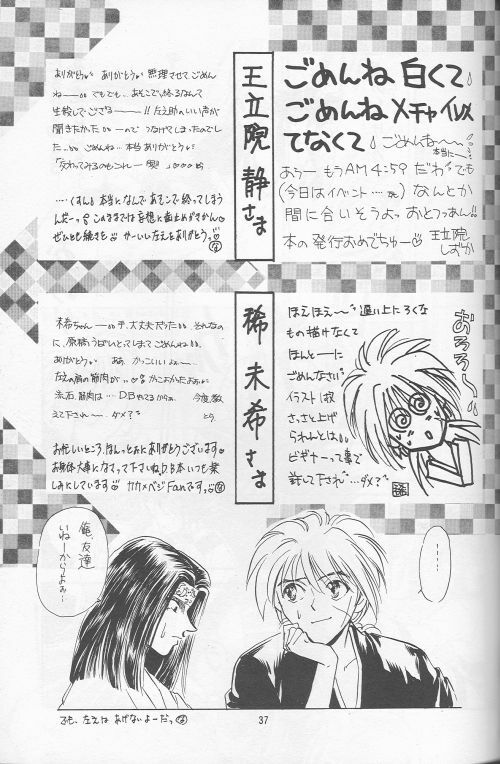 ごめんね 白くて
ごめんね メチャイソメ
てなくて
ごめんね〜〜
本当に〜
おうー もうAM4:59 だわ でも
(今日はイベント…… ) なんとか
間に合いそうよっ おとっつあん!!
本の発行おめでちゅー♡
王立院
しずか
王立院 静 さま
ありがとう ありがとう 無理させてごめん
ねー でもでも、あそこで終るなんて
生殺しでござるーーー!! 左之助のいい声が
聞きたかった ーので つなげてしまったのでし
た… ごめんね… 本当 ありがとう
…くすん 本当に なんで あそこで 終ってしまう
んだーっ このままでは 妄想に歯止めがきかん
ぜひとも続きを かーいい左えをありがとうっ
ほえほえ〜 遅い上に ろくな
もの描けなくて
ほんとーに
ごめんなさい
イラスト1枚
さっさと上げ
られんとは
ビギナーって事で
許して下され …ダメ?
おろろん
稀 未希 さま
未希ちゃんー で、大丈夫だった それなの
に、原稿うばいとってしまって ごめんねね
ありがとう ああ、かっこいいよぉー
左えの肩の筋肉が かっこよかったよぉ
流石、筋肉は… DBやってるからぁ 今度教
えて下され〜 ダメ?
お忙しいところ、ほんっとぉにありがとうございます
お身体大事になさって下さいね D.B本 いつも楽
しみにしています カカ×ベジFanですっ
俺、友達
いねーからよぉー
……
37
でも、左えは あげないよーだっ